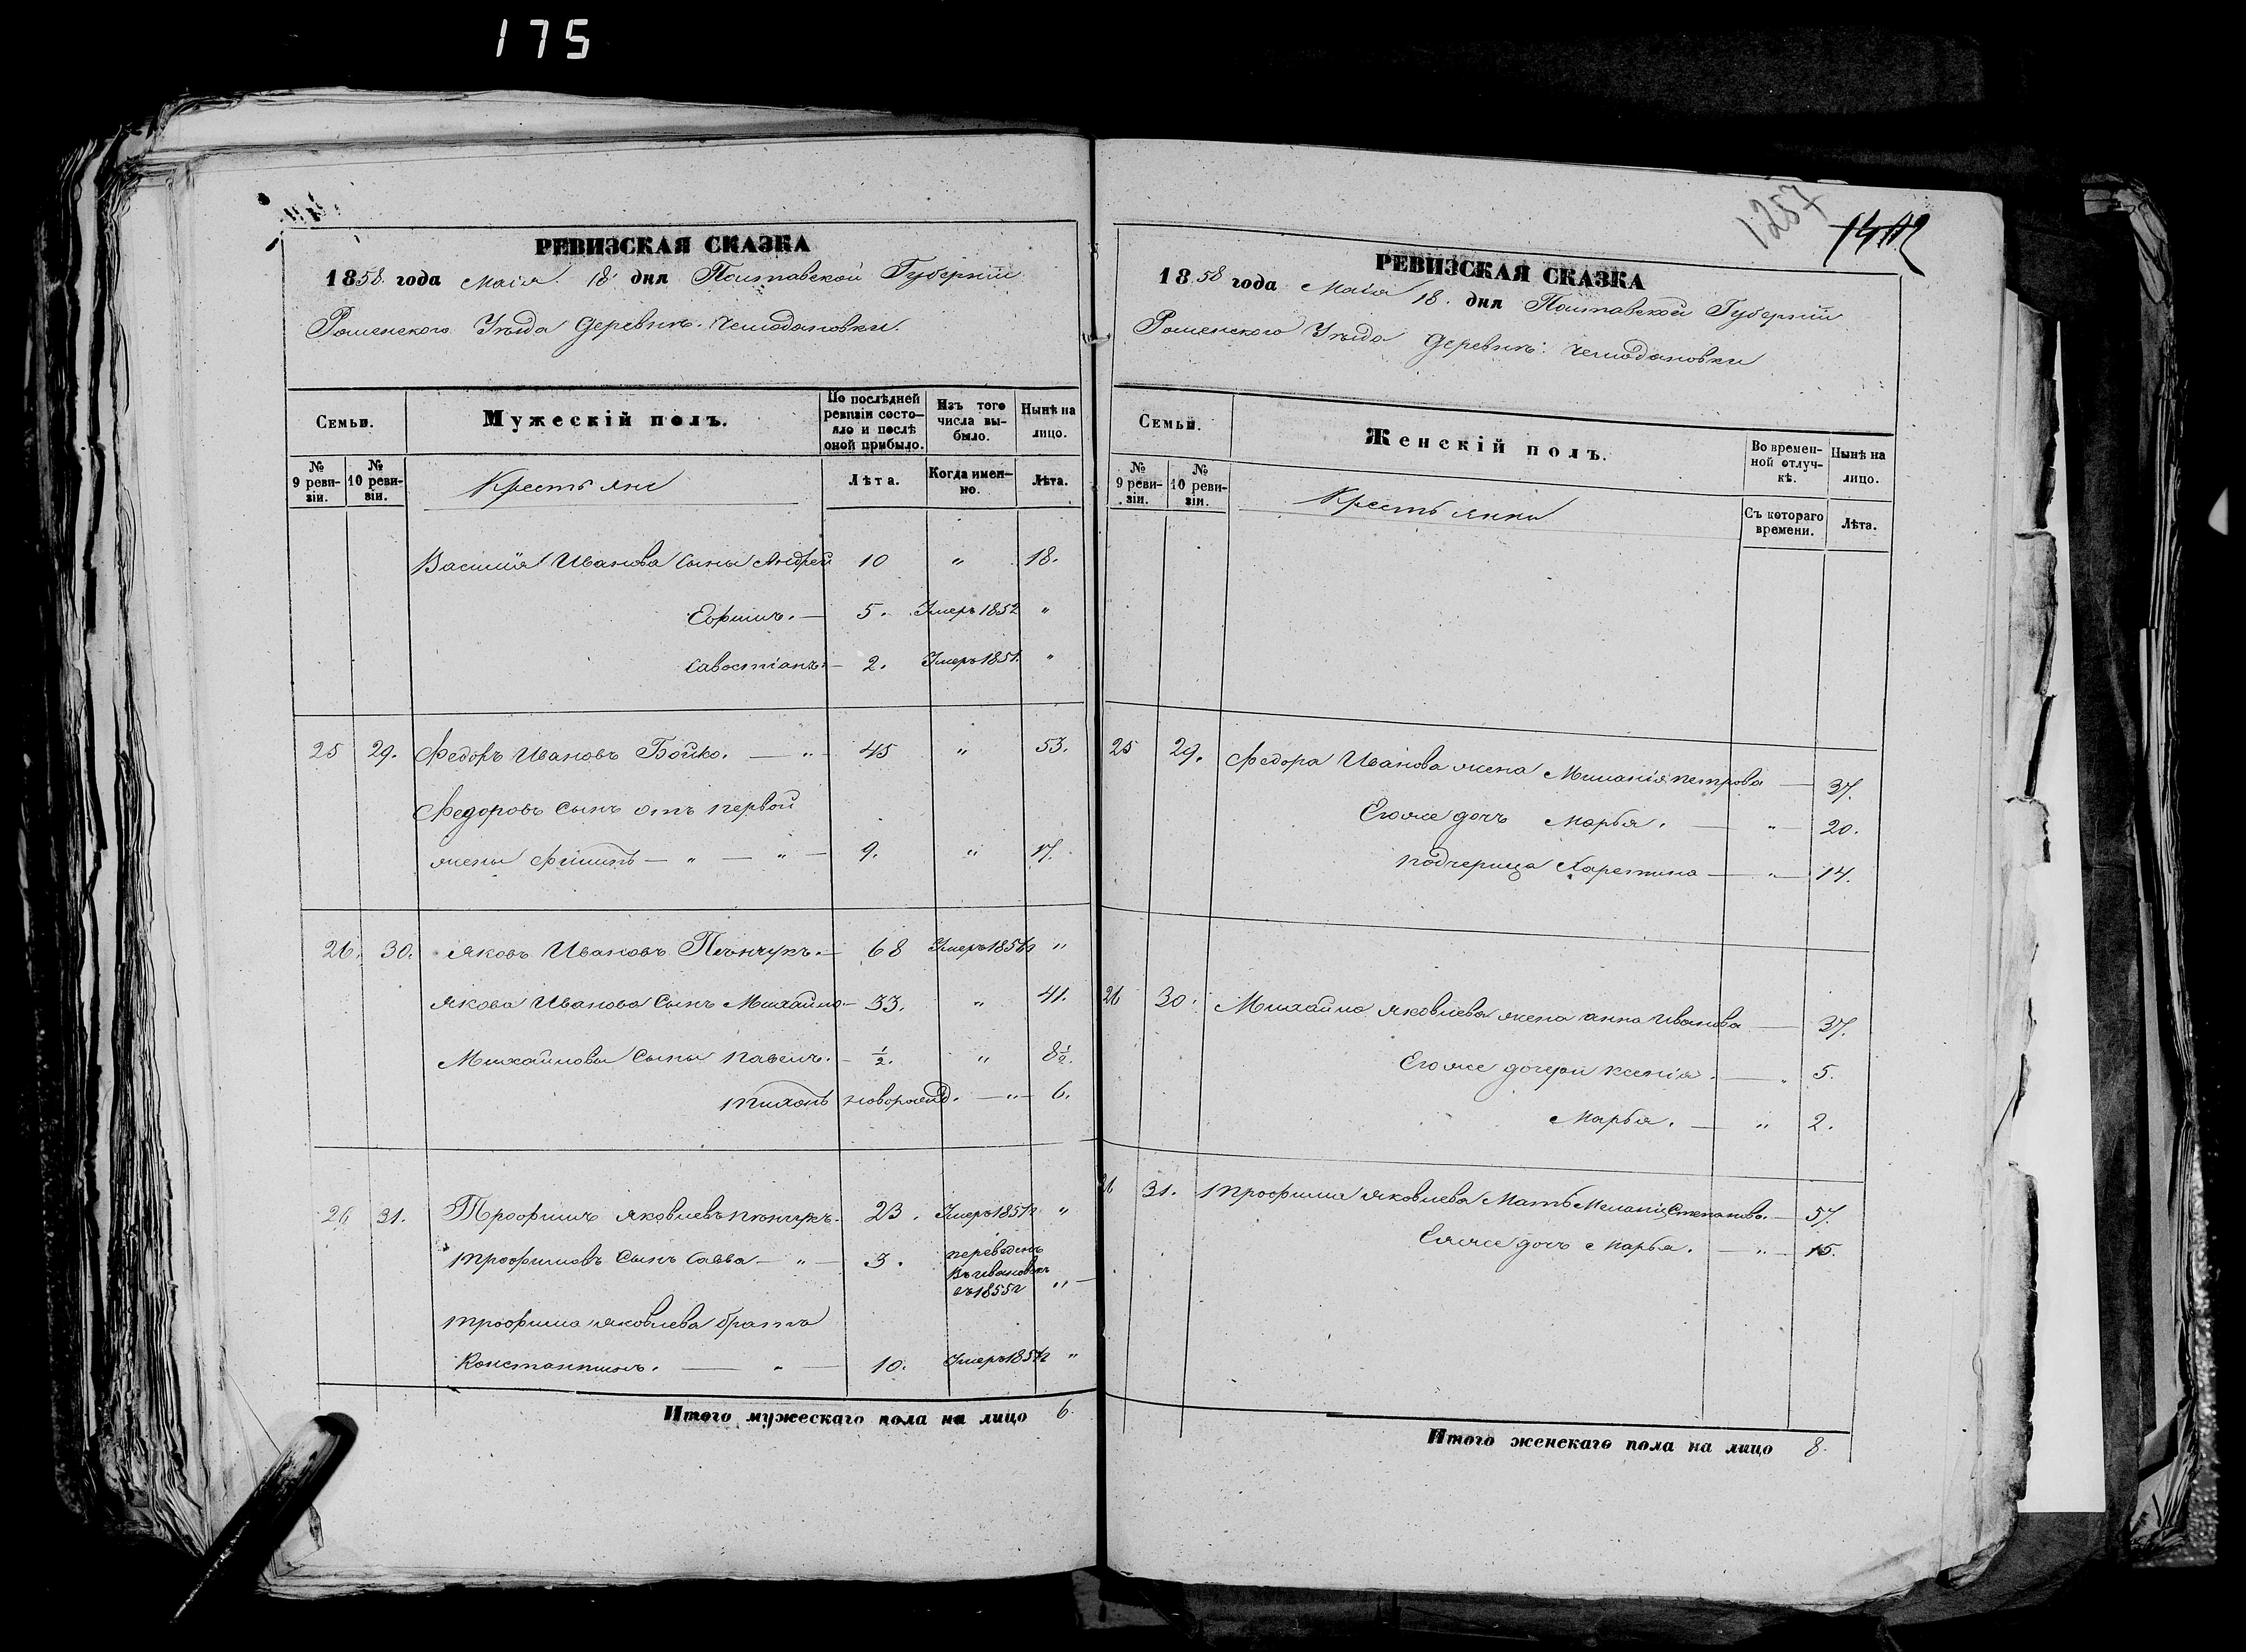 175
РЕВИЗСКАЯ СКАЗКА
1858 года Маія 18 дня Полтавской Губерніи
Роменского Уѣзда Деревнѣ Чемодановки.
Семьи.
Мужескій полъ.
По послѣдней ревизіи состояло и послѣ оной прибыло.
Изъ того числа выбыло.
Нынѣ на лицо.
№ 9 ревизіи.
№ 10 ревизіи.
Крестьяне
Лѣта.
Когда именно.
Лѣта.
Василія Иванова сыны Андрей 10 „ 18.
Ефимъ. — 5. Умеръ 1852 „
Савостіанъ. — 2. Умеръ 1851. „
25 29. Федоръ Ивановъ Бойко. — „ 45 „ 53.
Федоровъ сынъ отъ первой
жены Филипъ — „ — „ — 9. „ 17.
26. 30. Яковъ Ивановъ Пѣнчукъ. — 68 Умеръ „
Якова Иванова сынъ Михайло — 33. „ 41.
Михайловы сыны Павелъ. — ½. „ 8½.
Тихонъ новорожд. — „ — 6.
26 31. Трофимъ Яковлевъ Пѣнчукъ. 23. Умеръ „
Трофимовъ сынъ Савва — „ — 3. переведенъ
въ Ивановкѣ
въ 1855г „
Трофима Яковлева брата
Константинъ. — „ — 10. Умеръ „
Итого мужескаго пола на лицо 6.
1257
РЕВИЗСКАЯ СКАЗКА
1858 года Маія 18. дня Полтавской Губерніи
Роменского Уѣзда Деревнѣ: Чемодановки
Семьи.
Женскій полъ.
Во временной отлучкѣ.
Нынѣ на лицо.
№ 9 ревизіи.
№ 10 ревизіи.
Крестьянки
Съ котораго времени.
Лѣта.
25 29. Федора Иванова жена Миланія Петрова — 37.
Его же дочь Марья. — „ — 20.
Подчерица Харетина — „ — 14.
26 30. Михайла Яковлева жена Анна Иванова — 37.
Его же дочери Ксенія. — „ 5.
Марья. — „ 2.
26 31. Трофима Яковлева Мать Меланія Степанова. — 57.
Ея же дочь Марья. — „ — 15.
Итого женскаго пола на лицо 8.